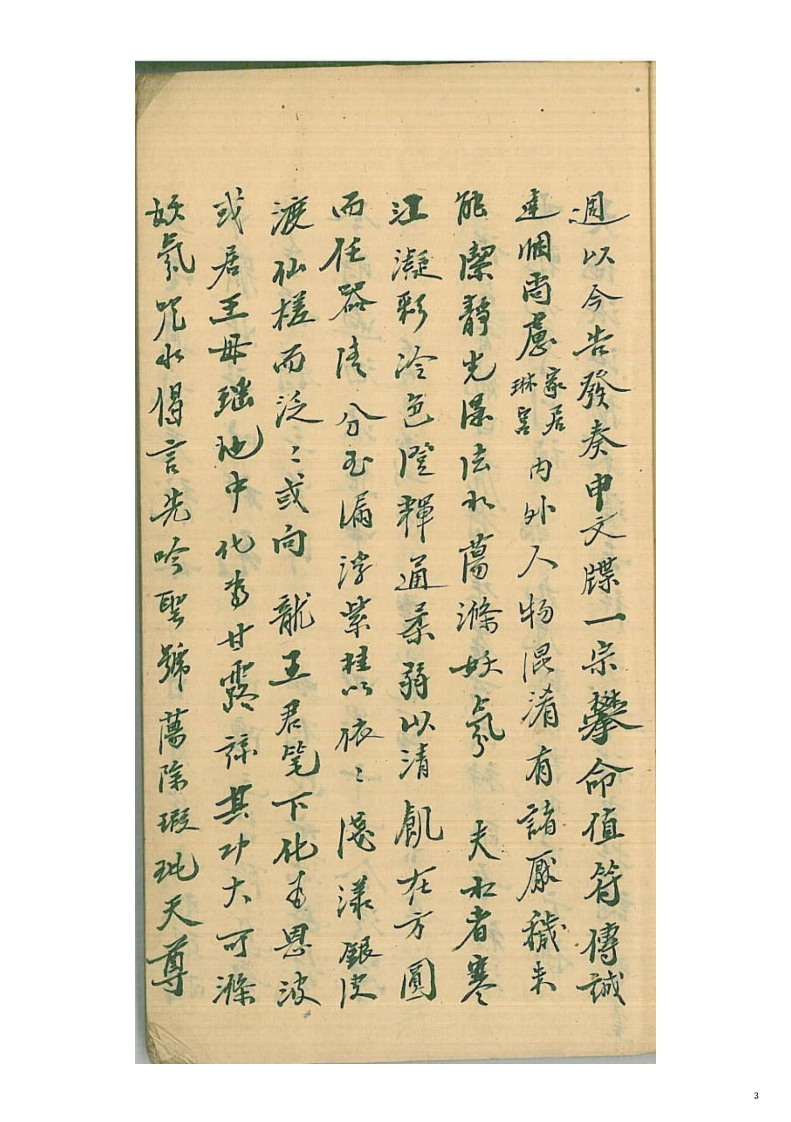 週以今告發奏申文牒一宗攀命值符傳誠
達悃啇慮家居琳宮內外人物混淆有諸厭穢未
能潔靜先漾法水蕩滌妖氛 夫水者寒
江凝彩冷色澄輝通柔弱以清瓢在方圓
而任器清分玉漏浮紫桂以依〻漾銀潢
渡仙槎而泛〻或向 龍王君笔下化為恩波
或居王母瑤池中化為甘露諒其功大可滌
妖氛咒水偈言先吟聖號蕩除瑕玼天尊
3